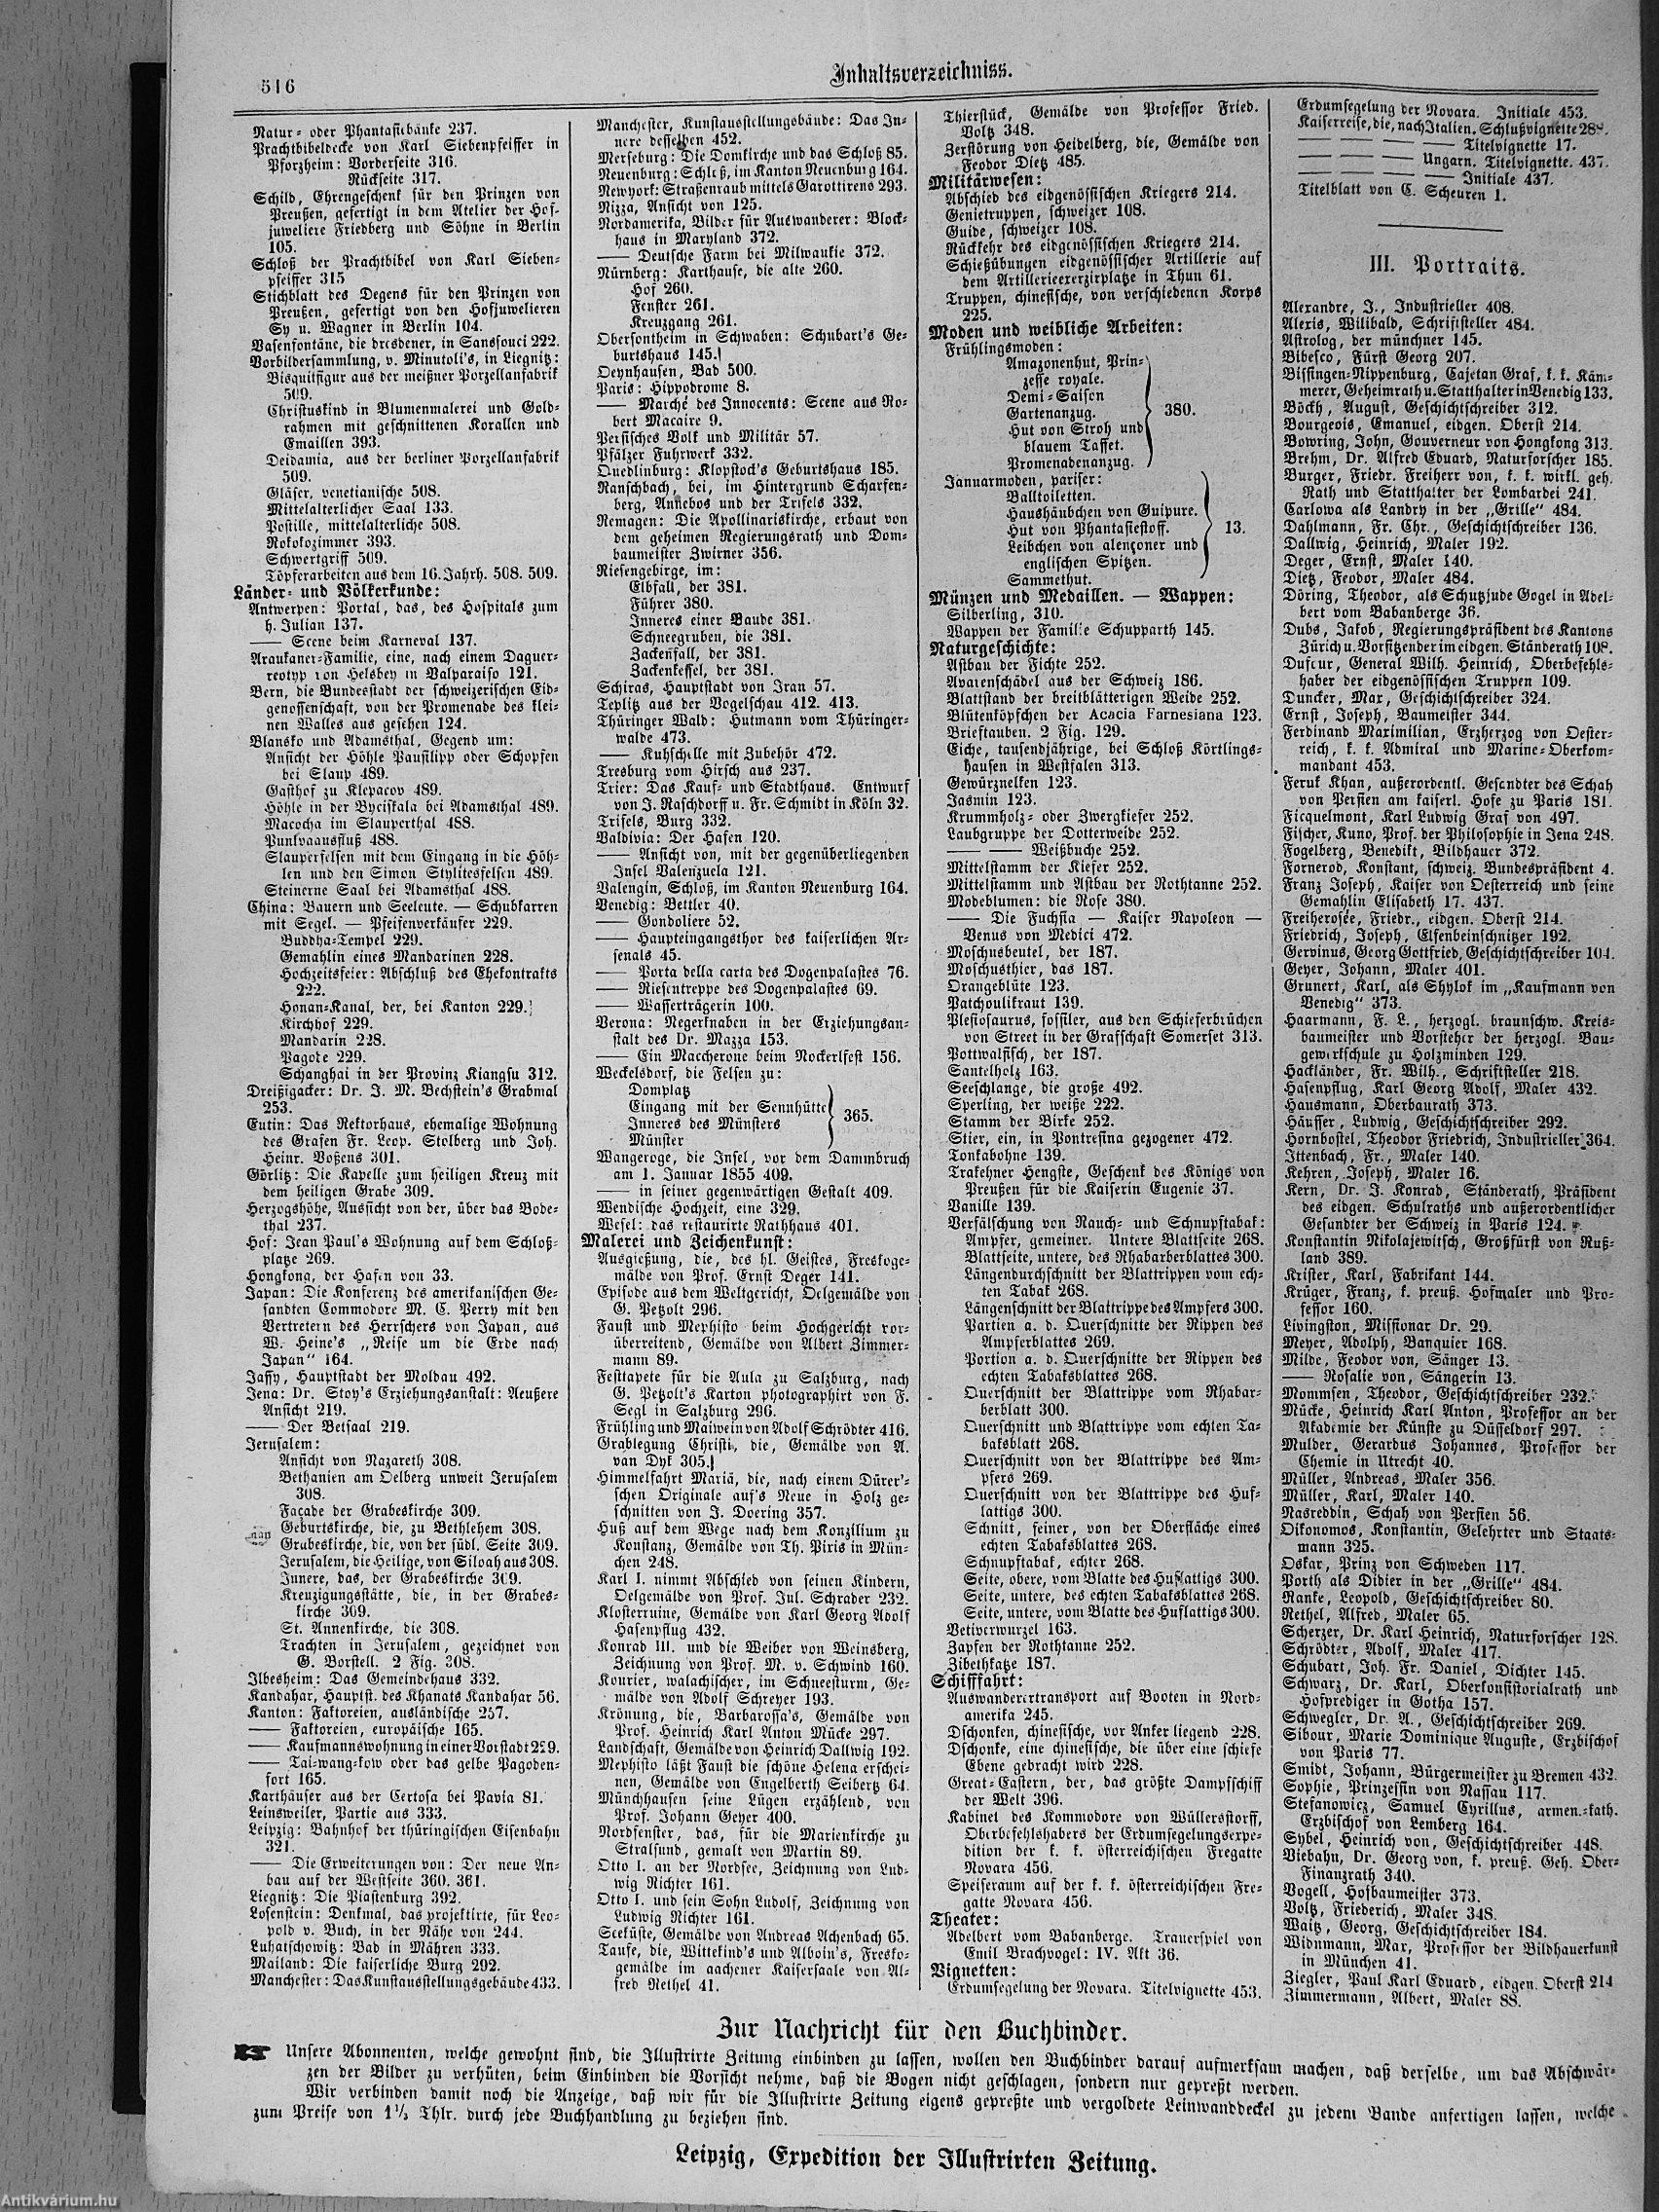 516
Inhaltsverzeichniss.
Natur- oder Phantasiebänke 237.
Prachtbibeldecke von Karl Siebenpfeiffer in
Pforzheim: Vorderseite 316.
Rückseite 317.
Schild, Ehrengeschenk für den Prinzen von
Preußen, gefertigt in dem Atelier der Hof-
juweliere Friedberg und Söhne in Berlin
105.
Schloß der Prachtbibel von Karl Sieben-
pfeiffer 315
Stichblatt des Degens für den Prinzen von
Preußen, gefertigt von den Hofjuwelieren
Sy u. Wagner in Berlin 104.
Vasenfontäne, die dresdener, in Sanssouci 222.
Vorbildersammlung, v. Minutoli's, in Liegnitz:
Bisquitfigur aus der meißner Porzellanfabrik
509.
Christuskind in Blumenmalerei und Gold-
rahmen mit geschnittenen Korallen und
Emaillen 393.
Deidamia, aus der berliner Porzellanfabrik
509.
Gläser, venetianische 508.
Mittelalterlicher Saal 133.
Postille, mittelalterliche 508.
Rokokozimmer 393.
Schwertgriff 509.
Töpferarbeiten aus dem 16. Jahrh. 508. 509.
Länder- und Völkerkunde:
Antwerpen: Portal, das, des Hospitals zum
h. Julian 137.
—— Scene beim Karneval 137.
Araukaner-Familie, eine, nach einem Daguer-
reotyp von Helsbey in Valparaiso 121.
Bern, die Bundesstadt der schweizerischen Eid-
genossenschaft, von der Promenade des klei-
nen Walles aus gesehen 124.
Blansko und Adamsthal, Gegend um:
Ansicht der Höhle Pausilipp oder Schopfen
bei Slaup 489.
Gasthof zu Klepacov 489.
Höhle in der Byciskala bei Adamsthal 489.
Macocha im Slauperthal 488.
Punkvaausfluß 488.
Slauperfelsen mit dem Eingang in die Höh-
len und den Simon Stylitesfelsen 489.
Steinerne Saal bei Adamsthal 488.
China: Bauern und Seeleute. — Schubkarren
mit Segel. — Pfeifenverkäufer 229.
Buddha-Tempel 229.
Gemahlin eines Mandarinen 228.
Hochzeitsfeier: Abschluß des Ehekontrakts
222.
Honan-Kanal, der, bei Kanton 229.
Kirchhof 229.
Mandarin 228.
Pagote 229.
Schanghai in der Provinz Kiangsu 312.
Dreißigacker: Dr. J. M. Bechstein's Grabmal
253.
Eutin: Das Rektorhaus, ehemalige Wohnung
des Grafen Fr. Leop. Stolberg und Joh.
Heinr. Voßens 301.
Görlitz: Die Kapelle zum heiligen Kreuz mit
dem heiligen Grabe 309.
Herzogshöhe, Aussicht von der, über das Bode-
thal 237.
Hof: Jean Paul's Wohnung auf dem Schloß-
platze 269.
Hongkong, der Hafen von 33.
Japan: Die Konferenz des amerikanischen Ge-
sandten Commodore M. C. Perry mit den
Vertretern des Herrschers von Japan, aus
W. Heine's „Reise um die Erde nach
Japan“ 164.
Jassy, Hauptstadt der Moldau 492.
Jena: Dr. Stoy's Erziehungsanstalt: Aeußere
Ansicht 219.
—— Der Betsaal 219.
Jerusalem:
Ansicht von Nazareth 308.
Bethanien am Oelberg unweit Jerusalem
308.
Façade der Grabeskirche 309.
Geburtskirche, die, zu Bethlehem 308.
Grabeskirche, die, von der südl. Seite 309.
Jerusalem, die Heilige, von Siloah aus 308.
Innere, das, der Grabeskirche 309.
Kreuzigungsstätte, die, in der Grabes-
kirche 309.
St. Annenkirche, die 308.
Trachten in Jerusalem, gezeichnet von
G. Borstell. 2 Fig. 308.
Ilbesheim: Das Gemeindehaus 332.
Kandahar, Hauptst. des Khanats Kandahar 56.
Kanton: Faktoreien, ausländische 257.
—— Faktoreien, europäische 165.
—— Kaufmannswohnung in einer Vorstadt 229.
—— Tai-wang-kow oder das gelbe Pagoden-
fort 165.
Karthäuser aus der Certosa bei Pavia 81.
Leinsweiler, Partie aus 333.
Leipzig: Bahnhof der thüringischen Eisenbahn
321.
—— Die Erweiterungen von: Der neue An-
bau auf der Westseite 360. 361.
Liegnitz: Die Piastenburg 392.
Losenstein: Denkmal, das projektirte, für Leo-
pold v. Buch, in der Nähe von 244.
Luhatschowitz: Bad in Mähren 333.
Mailand: Die kaiserliche Burg 292.
Manchester: Das Kunstausstellungsgebäude 433.
Manchester, Kunstausstellungsbäude: Das In-
nere desselben 452.
Merseburg: Die Domkirche und das Schloß 85.
Neuenburg: Schloß, im Kanton Neuenburg 164.
Newyork: Straßenraub mittels Garottirens 293.
Nizza, Ansicht von 125.
Nordamerika, Bilder für Auswanderer: Block-
haus in Maryland 372.
—— Deutsche Farm bei Milwaukie 372.
Nürnberg: Karthause, die alte 260.
Hof 260.
Fenster 261.
Kreuzgang 261.
Obersontheim in Schwaben: Schubart's Ge-
burtshaus 145.
Oeynhausen, Bad 500.
Paris: Hippodrome 8.
—— Marché des Innocents: Scene aus Ro-
bert Macaire 9.
Persisches Volk und Militär 57.
Pfälzer Fuhrwerk 332.
Quedlinburg: Klopstock's Geburtshaus 185.
Ranschbach, bei, im Hintergrund Scharfen-
berg, Annebos und der Trifels 332.
Remagen: Die Apollinariskirche, erbaut von
dem geheimen Regierungsrath und Dom-
baumeister Zwirner 356.
Riesengebirge, im:
Elbfall, der 381.
Führer 380.
Inneres einer Baude 381.
Schneegruben, die 381.
Zackenfall, der 381.
Zackenkessel, der 381.
Schiras, Hauptstadt von Iran 57.
Teplitz aus der Vogelschau 412. 413.
Thüringer Wald: Hutmann vom Thüringer-
walde 473.
—— Kuhschelle mit Zubehör 472.
Tresburg vom Hirsch aus 237.
Trier: Das Kauf- und Stadthaus. Entwurf
von J. Raschdorff u. Fr. Schmidt in Köln 32.
Trifels, Burg 332.
Valdivia: Der Hafen 120.
—— Ansicht von, mit der gegenüberliegenden
Insel Valenzuela 121.
Valengin, Schloß, im Kanton Neuenburg 164.
Venedig: Bettler 40.
—— Gondoliere 52.
—— Haupteingangsthor des kaiserlichen Ar-
senals 45.
—— Porta della carta des Dogenpalastes 76.
—— Riesentreppe des Dogenpalastes 69.
—— Wasserträgerin 100.
Verona: Negerknaben in der Erziehungsan-
stalt des Dr. Mazza 153.
—— Ein Maccherone beim Nockerlfest 156.
Weckelsdorf, die Felsen zu:
Domplatz
Eingang mit der Sennhütte
Inneres des Münsters
Münster
365.
Wangeroge, die Insel, vor dem Dammbruch
am 1. Januar 1855 409.
—— in seiner gegenwärtigen Gestalt 409.
Wendische Hochzeit, eine 329.
Wesel: das restaurirte Rathhaus 401.
Malerei und Zeichenkunst:
Ausgießung, die, des hl. Geistes, Freskoge-
mälde von Prof. Ernst Deger 141.
Episode aus dem Weltgericht, Oelgemälde von
G. Petzolt 296.
Faust und Mephisto beim Hochgericht vor-
überreitend, Gemälde von Albert Zimmer-
mann 89.
Festtapete für die Aula zu Salzburg, nach
G. Petzolt's Karton photographirt von F.
Segl in Salzburg 296.
Frühling und Maiwein von Adolf Schrödter 416.
Grablegung Christi, die, Gemälde von A.
van Dyk 305.
Himmelfahrt Mariä, die, nach einem Dürer'-
schen Originale auf's Neue in Holz ge-
schnitten von J. Doering 357.
Huß auf dem Wege nach dem Konzilium zu
Konstanz, Gemälde von Th. Piris in Mün-
chen 248.
Karl I. nimmt Abschied von seinen Kindern,
Oelgemälde von Prof. Jul. Schrader 232.
Klosterruine, Gemälde von Karl Georg Adolf
Hasenpflug 432.
Konrad III. und die Weiber von Weinsberg,
Zeichnung von Prof. M. v. Schwind 160.
Kourier, walachischer, im Schneesturm, Ge-
mälde von Adolf Schreyer 193.
Krönung, die, Barbarossa's, Gemälde von
Prof. Heinrich Karl Anton Mücke 297.
Landschaft, Gemälde von Heinrich Dallwig 192.
Mephisto läßt Faust die schöne Helena erschei-
nen, Gemälde von Engelberth Seibertz 64.
Münchhausen seine Lügen erzählend, von
Prof. Johann Geyer 400.
Nordfenster, das, für die Marienkirche zu
Stralsund, gemalt von Martin 89.
Otto I. an der Nordsee, Zeichnung von Lud-
wig Richter 161.
Otto I. und sein Sohn Ludolf, Zeichnung von
Ludwig Richter 161.
Seeküste, Gemälde von Andreas Achenbach 65.
Taufe, die, Wittekind's und Alboin's, Fresko-
gemälde im aachener Kaisersaale von Al-
fred Rethel 41.
Thierstück, Gemälde von Professor Fried.
Voltz 348.
Zerstörung von Heidelberg, die, Gemälde von
Feodor Dietz 485.
Militärwesen:
Abschied des eidgenössischen Kriegers 214.
Genietruppen, schweizer 108.
Guide, schweizer 108.
Rückkehr des eidgenössischen Kriegers 214.
Schießübungen eidgenössischer Artillerie auf
dem Artillerieexerzirplatze in Thun 61.
Truppen, chinesische, von verschiedenen Korps
225.
Moden und weibliche Arbeiten:
Frühlingsmoden:
Amazonenhut, Prin-
zesse royale.
Demi-Saison
Gartenanzug.
Hut von Stroh und
blauem Taffet.
Promenadenanzug.
380.
Januarmoden, pariser:
Balltoiletten.
Haushäubchen von Guipure.
Hut von Phantasiestoff.
Leibchen von alençoner und
englischen Spitzen.
Sammethut.
13.
Münzen und Medaillen. — Wappen:
Silberling, 310.
Wappen der Familie Schupparth 145.
Naturgeschichte:
Astbau der Fichte 252.
Avarenschädel aus der Schweiz 186.
Blattstand der breitblätterigen Weide 252.
Blütenköpfchen der Acacia Farnesiana 123.
Brieftauben. 2 Fig. 129.
Eiche, tausendjährige, bei Schloß Körtlings-
hausen in Westfalen 313.
Gewürznelken 123.
Jasmin 123.
Krummholz- oder Zwergkiefer 252.
Laubgruppe der Dotterweide 252.
—— —— Weißbuche 252.
Mittelstamm der Kiefer 252.
Mittelstamm und Astbau der Rothtanne 252.
Modeblumen: die Rose 380.
—— Die Fuchsia — Kaiser Napoleon —
Venus von Medici 472.
Moschusbeutel, der 187.
Moschusthier, das 187.
Orangeblüte 123.
Patchoulikraut 139.
Plesiosaurus, fossiler, aus den Schieferbrüchen
von Street in der Grafschaft Somerset 313.
Pottwalfisch, der 187.
Santelholz 163.
Seeschlange, die große 492.
Sperling, der weiße 222.
Stamm der Birke 252.
Stier, ein, in Pontresina gezogener 472.
Tonkabohne 139.
Trakehner Hengste, Geschenk des Königs von
Preußen für die Kaiserin Eugenie 37.
Vanille 139.
Verfälschung von Rauch- und Schnupftabak:
Ampfer, gemeiner. Untere Blattseite 268.
Blattseite, untere, des Rhabarberblattes 300.
Längendurchschnitt der Blattrippen vom ech-
ten Tabak 268.
Längenschnitt der Blattrippe des Ampfers 300.
Partien a. d. Querschnitte der Rippen des
Ampferblattes 269.
Portion a. d. Querschnitte der Rippen des
echten Tabaksblattes 268.
Querschnitt der Blattrippe vom Rhabar-
berblatt 300.
Querschnitt und Blattrippe vom echten Ta-
baksblatt 268.
Querschnitt von der Blattrippe des Am-
pfers 269.
Querschnitt von der Blattrippe des Huf-
lattigs 300.
Schnitt, feiner, von der Oberfläche eines
echten Tabaksblattes 268.
Schnupftabak, echter 268.
Seite, obere, vom Blatte des Huflattigs 300.
Seite, untere, des echten Tabaksblattes 268.
Seite, untere, vom Blatte des Huflattigs 300.
Vetiverwurzel 163.
Zapfen der Rothtanne 252.
Zibethkatze 187.
Schifffahrt:
Auswanderertransport auf Booten in Nord-
amerika 245.
Dschonken, chinesische, vor Anker liegend 228.
Dschonke, eine chinesische, die über eine schiefe
Ebene gebracht wird 228.
Great-Eastern, der, das größte Dampfschiff
der Welt 396.
Kabinet des Kommodore von Wüllerstorff,
Oberbefehlshabers der Erdumsegelungsexpe-
dition der k. k. österreichischen Fregatte
Novara 456.
Speiseraum auf der k. k. österreichischen Fre-
gatte Novara 456.
Theater:
Adelbert vom Babanberge. Trauerspiel von
Emil Brachvogel: IV. Akt 36.
Vignetten:
Erdumsegelung der Novara. Titelvignette 453.
Erdumsegelung der Novara. Initiale 453.
Kaiserreise, die, nach Italien. Schlußvignette 288.
—— —— —— —— Titelvignette 17.
—— —— —— Ungarn. Titelvignette. 437.
—— —— —— —— Initiale 437.
Titelblatt von C. Scheuren 1.
III. Portraits.
Alexandre, J., Industrieller 408.
Alexis, Wilibald, Schriftsteller 484.
Astrolog, der münchner 145.
Bibesco, Fürst Georg 207.
Bissingen-Nippenburg, Cajetan Graf, k. k. Käm-
merer, Geheimrath u. Statthalter in Venedig 133.
Böckh, August, Geschichtschreiber 312.
Bourgeois, Emanuel, eidgen. Oberst 214.
Bowring, John, Gouverneur von Hongkong 313.
Brehm, Dr. Alfred Eduard, Naturforscher 185.
Burger, Friedr. Freiherr von, k. k. wirkl. geh.
Rath und Statthalter der Lombardei 241.
Carlowa als Landry in der „Grille“ 484.
Dahlmann, Fr. Chr., Geschichtschreiber 136.
Dallwig, Heinrich, Maler 192.
Deger, Ernst, Maler 140.
Dietz, Feodor, Maler 484.
Döring, Theodor, als Schutzjude Gogel in Adel-
bert vom Babanberge 36.
Dubs, Jakob, Regierungspräsident des Kantons
Zürich u. Vorsitzender im eidgen. Ständerath 108.
Dufour, General Wilh. Heinrich, Oberbefehls-
haber der eidgenössischen Truppen 109.
Duncker, Max, Geschichtschreiber 324.
Ernst, Joseph, Baumeister 344.
Ferdinand Maximilian, Erzherzog von Oester-
reich, k. k. Admiral und Marine-Oberkom-
mandant 453.
Feruk Khan, außerordentl. Gesandter des Schah
von Persien am kaiserl. Hofe zu Paris 181.
Ficquelmont, Karl Ludwig Graf von 497.
Fischer, Kuno, Prof. der Philosophie in Jena 248.
Fogelberg, Benedikt, Bildhauer 372.
Fornerod, Konstant, schweiz. Bundespräsident 4.
Franz Joseph, Kaiser von Oesterreich und seine
Gemahlin Elisabeth 17. 437.
Freiherosée, Friedr., eidgen. Oberst 214.
Friedrich, Joseph, Elfenbeinschnitzer 192.
Gervinus, Georg Gottfried, Geschichtschreiber 104.
Geyer, Johann, Maler 401.
Grunert, Karl, als Shylok im „Kaufmann von
Venedig“ 373.
Haarmann, F. L., herzogl. braunschw. Kreis-
baumeister und Vorsteher der herzogl. Bau-
gewerkschule zu Holzminden 129.
Hackländer, Fr. Wilh., Schriftsteller 218.
Hasenpflug, Karl Georg Adolf, Maler 432.
Hausmann, Oberbaurath 373.
Häusser, Ludwig, Geschichtschreiber 292.
Hornbostel, Theodor Friedrich, Industrieller 364.
Ittenbach, Fr., Maler 140.
Kehren, Joseph, Maler 16.
Kern, Dr. J. Konrad, Ständerath, Präsident
des eidgen. Schulraths und außerordentlicher
Gesandter der Schweiz in Paris 124.
Konstantin Nikolajewitsch, Großfürst von Ruß-
land 389.
Krister, Karl, Fabrikant 144.
Krüger, Franz, k. preuß. Hofmaler und Pro-
fessor 160.
Livingston, Missionar Dr. 29.
Meyer, Adolph, Banquier 168.
Milde, Feodor von, Sänger 13.
—— Rosalie von, Sängerin 13.
Mommsen, Theodor, Geschichtschreiber 232.
Mücke, Heinrich Karl Anton, Professor an der
Akademie der Künste zu Düsseldorf 297.
Mulder, Gerardus Johannes, Professor der
Chemie in Utrecht 40.
Müller, Andreas, Maler 356.
Müller, Karl, Maler 140.
Nasreddin, Schah von Persien 56.
Oikonomos, Konstantin, Gelehrter und Staats-
mann 325.
Oskar, Prinz von Schweden 117.
Porth als Didier in der „Grille“ 484.
Ranke, Leopold, Geschichtschreiber 80.
Rethel, Alfred, Maler 65.
Scherzer, Dr. Karl Heinrich, Naturforscher 128.
Schrödter, Adolf, Maler 417.
Schubart, Joh. Fr. Daniel, Dichter 145.
Schwarz, Dr. Karl, Oberkonsistorialrath und
Hofprediger in Gotha 157.
Schwegler, Dr. A., Geschichtschreiber 269.
Sibour, Marie Dominique Auguste, Erzbischof
von Paris 77.
Smidt, Johann, Bürgermeister zu Bremen 432.
Sophie, Prinzessin von Nassau 117.
Stefanowicz, Samuel Cyrillus, armen.-kath.
Erzbischof von Lemberg 164.
Sybel, Heinrich von, Geschichtschreiber 448.
Viebahn, Dr. Georg von, k. preuß. Geh. Ober-
Finanzrath 340.
Vogell, Hofbaumeister 373.
Voltz, Friederich, Maler 348.
Waitz, Georg, Geschichtschreiber 184.
Widnmann, Max, Professor der Bildhauerkunst
in München 41.
Ziegler, Paul Karl Eduard, eidgen. Oberst 214
Zimmermann, Albert, Maler 88.
Zur Nachricht für den Buchbinder.
Unsere Abonnenten, welche gewohnt sind, die Illustrirte Zeitung einbinden zu lassen, wollen den Buchbinder darauf aufmerksam machen, daß derselbe, um das Abschwär-
zen der Bilder zu verhüten, beim Einbinden die Vorsicht nehme, daß die Bogen nicht geschlagen, sondern nur gepreßt werden.
Wir verbinden damit noch die Anzeige, daß wir für die Illustrirte Zeitung eigens gepreßte und vergoldete Leinwanddeckel zu jedem Bande anfertigen lassen, welche
zum Preise von 1⅓ Thlr. durch jede Buchhandlung zu beziehen sind.
Leipzig, Expedition der Illustrirten Zeitung.
Antikvárium.hu